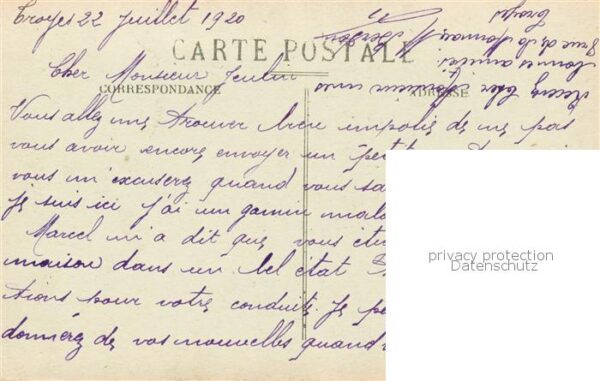 Troyes 22 Juillet 1920
CARTE POSTALE
Cher Monsieur Jeulin
CORRESPONDANCE
ADRESSE
Vous allez me trouver bien impolie de ne pas
vous avoir encore envoyer un petit
vous m'excuserez quand vous sa
Je suis ici j'ai un gamin mala
Marcel m'a dit que vous ete
maison dans un bel état
tions pour votre conduite. Je pe
donnerez de vos nouvelles quand
Recevez cher Monsieur mes
bonnes amitiés
rue de la Monnaie
Troyes
privacy protection
Datenschutz